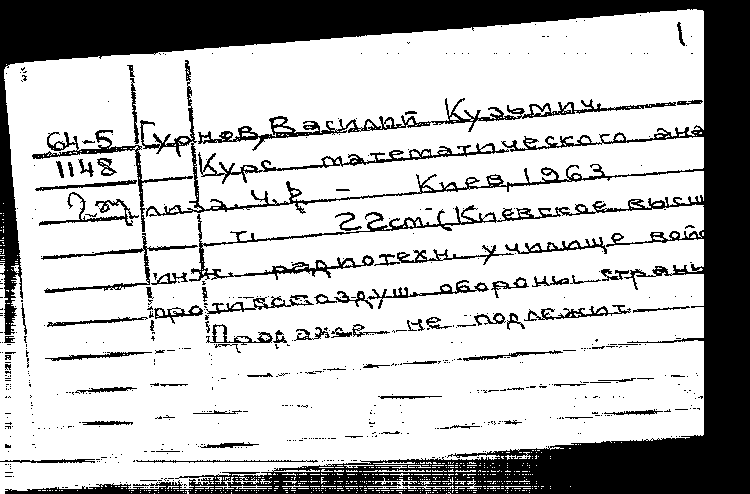 1
64-5 Гурнов, Василий Кузьмич.
1148 Курс математического ана
лиза. Ч. – Киев, 1963
т. 22 см. (Киевское высш
инж. радиотехн. училище войс
противовоздуш. обороны страны
Продаже не подлежит